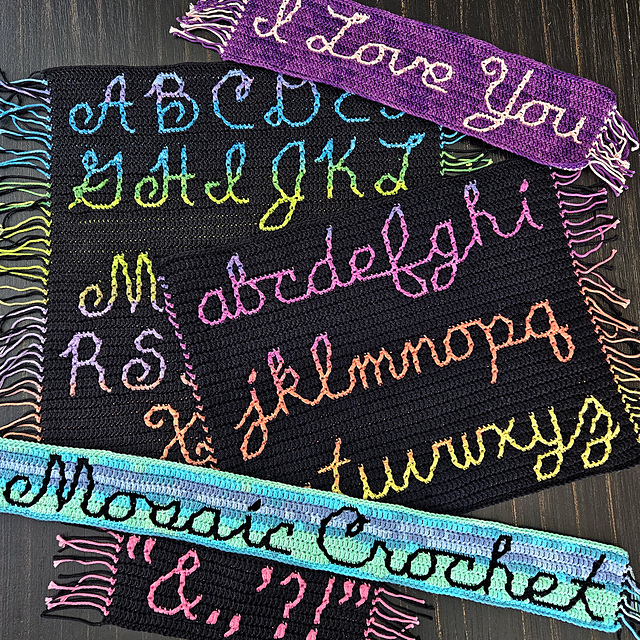 I Love You
A B C D E
G H I J K L
M
R S
X
abcdefghi
jklmnopq
tuvwxyz
Mosaic Crochet
"&,,'?!"